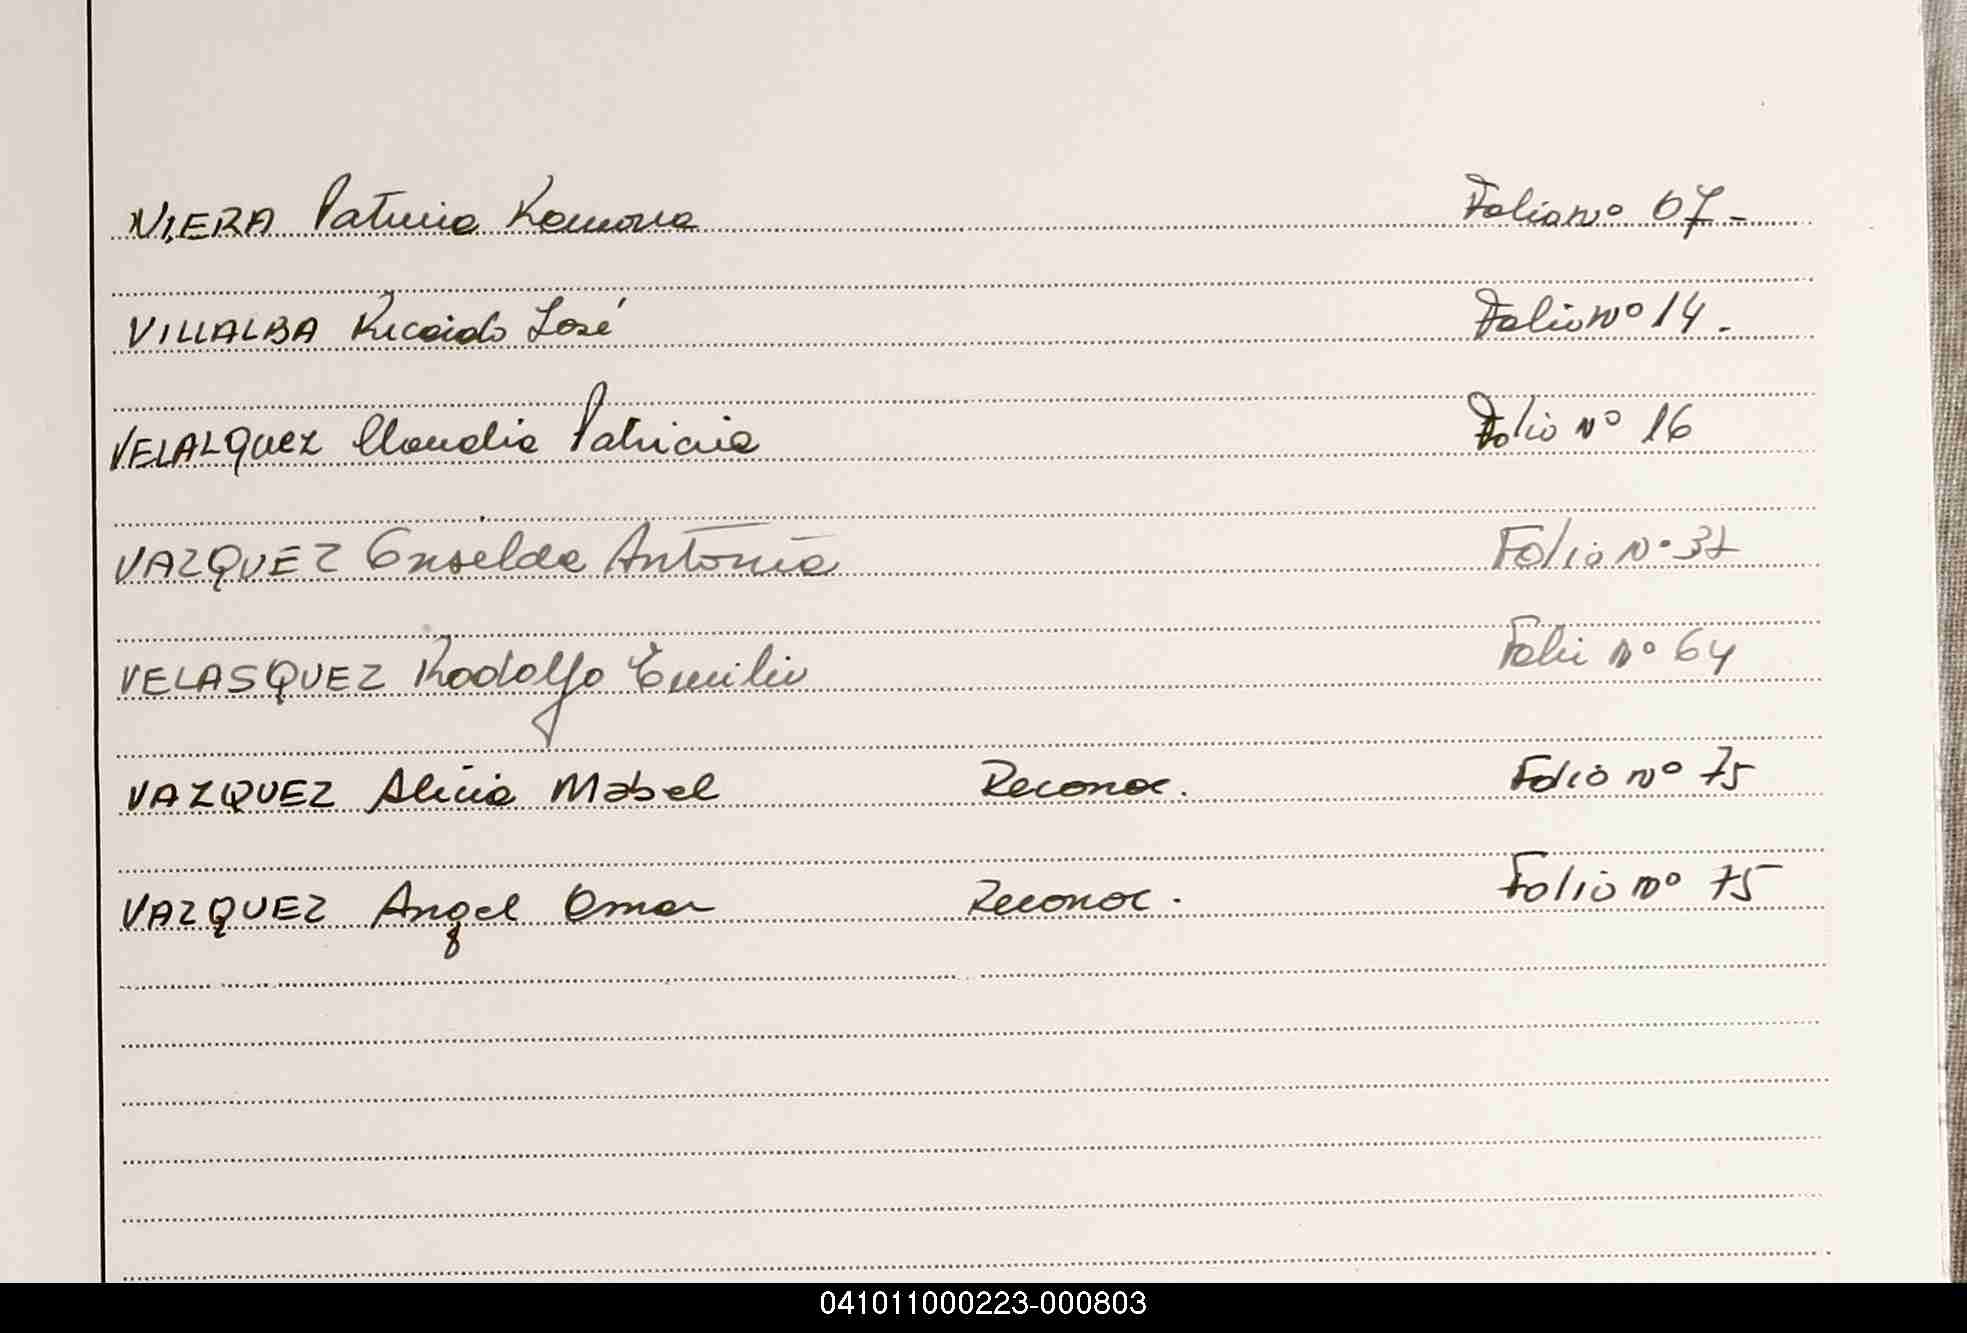 NIERA Patricia Ramona Folio nº 07-
VILLALBA Ricardo José Folio nº 14.
VELALQUEZ Claudia Patricia Folio nº 16
VAZQUEZ Antonia Folio Nº 37
VELASQUEZ Rodolfo Emilio Folio nº 64
VAZQUEZ Alicia Mabel Reconoc. Folio nº 75
VAZQUEZ Angel Omar Reconoc. Folio nº 75
041011000223-000803